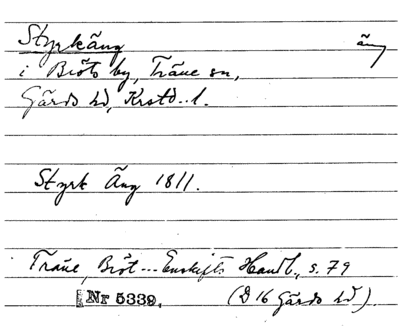 Styrkäng äng
i Bröts by, Träne sn,
Gärds hd, Krstd. l.
Styrk Äng 1811.
Träne, Bröt... Enskifts Handl., s. 79
Nr 5339. (D 16 Gärds hd).